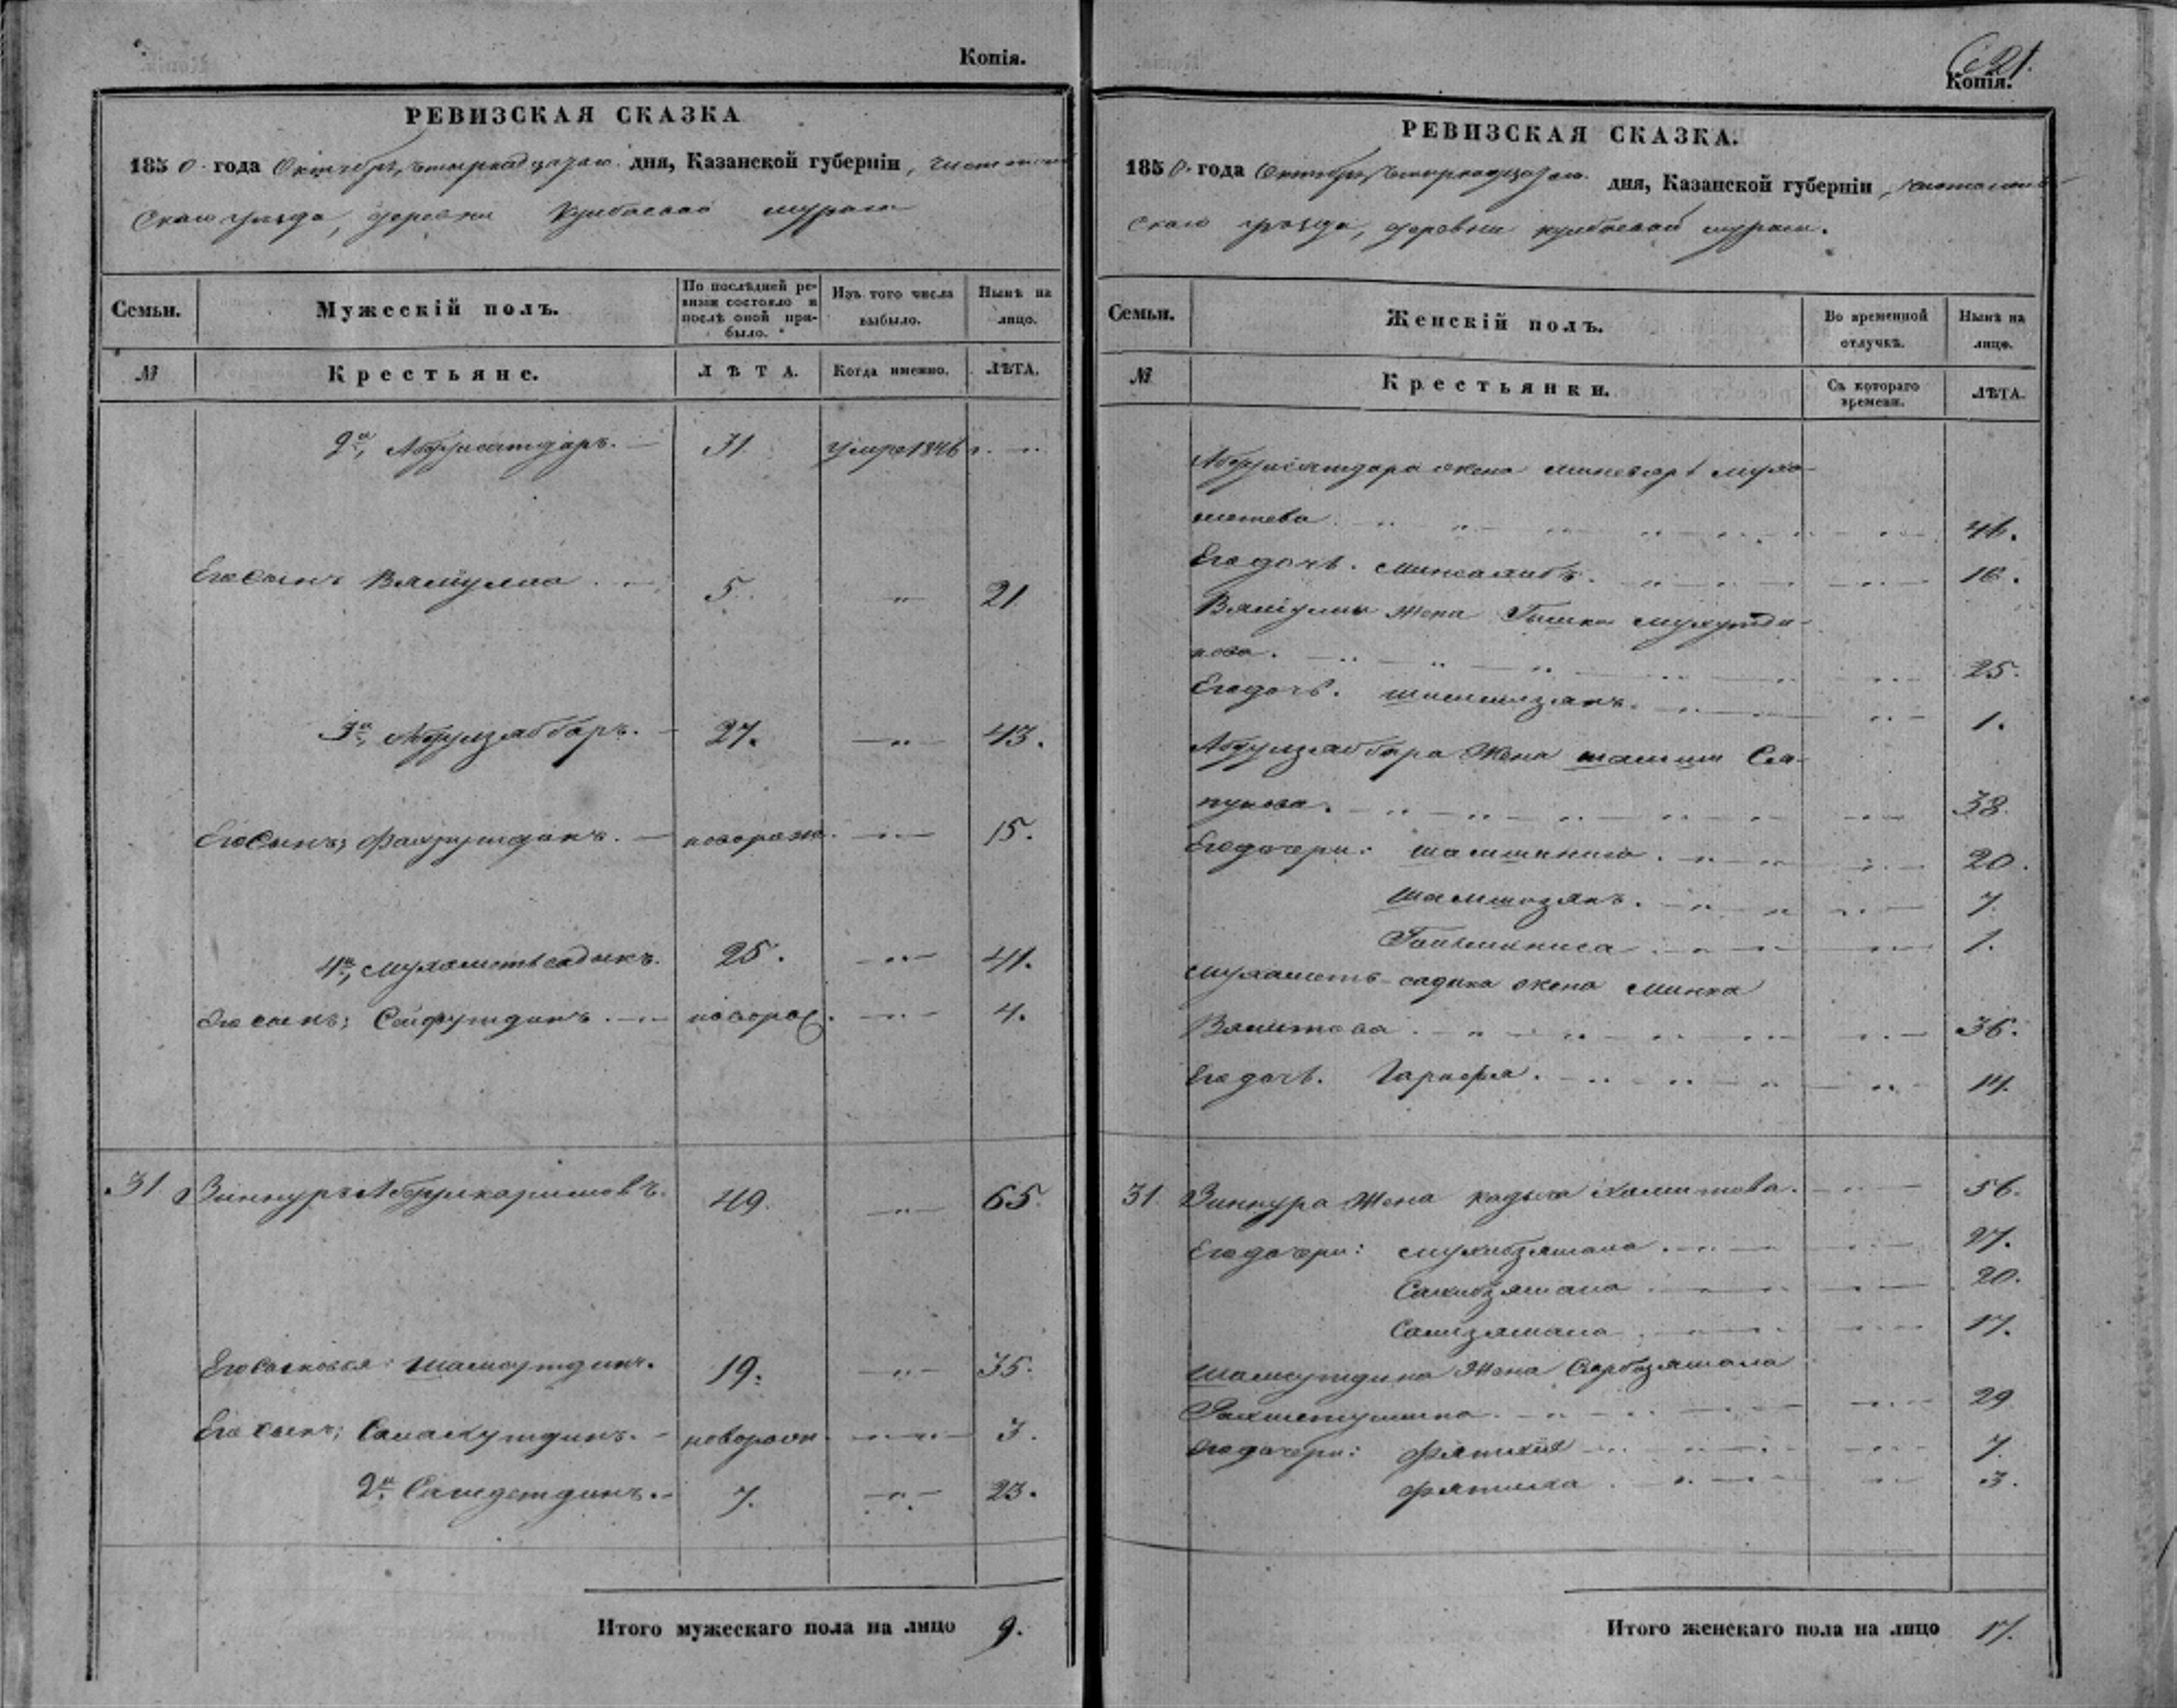 Копія.
РЕВИЗСКАЯ СКАЗКА
1850 года Октября четырнадцатаго дня, Казанской губерніи, чистополь
скаго уѣзда, деревни Кулбаевой мурасы
Семьи.
Мужескій полъ.
По послѣдней ре-
визіи состояло и
послѣ оной при-
было.
Изъ того числа
выбыло.
Нынѣ на
лицо.
№
Крестьяне.
ЛѢТА.
Когда именно.
ЛѢТА.
2й, Абдулсатдаръ. 31 умре 1846 г.
Его сынъ Вялiулла 5. 21
3й, Абдулзяббаръ. 27. 43.
Его сынъ; Фахрутдинъ. новорож. 15.
4й, Мухаметьсадыкъ. 25. 41.
Его сынъ; Сейфутдинъ. новорож. 4.
31 Виннуръ Абдулкаримовъ. 49. 65.
Его сыновья: Шамсутдинъ. 19. 35.
Его сынъ; Салахутдинъ. новорожд. 3.
2й Сагидетдинъ. 7. 23.
Итого мужескаго пола на лицо 9.
621.
Копія.
РЕВИЗСКАЯ СКАЗКА.
1850 года Октября четырнадцатаго дня, Казанской губерніи, чистополь
скаго уѣзда, деревни кулбаевой мурасы.
Семьи.
Женскій полъ.
Во временной
отлучкѣ.
Нынѣ на
лицо.
№
Крестьянки.
Съ котораго
времени.
ЛѢТА.
Абдулсатдара жена муха-
метева 46.
Его дочь. 16.
Вялiуллы жена мухутди-
нова. 25.
Его дочь. 1.
Абдулзяббара жена Ся-
пукова. 38.
Его дочери: 20.
Шамшизянъ. 7.
1.
Мухаметь-садыка жена Минка
Вялитова 36.
Его дочь. Гарифа. 14.
31. Виннура жена кадыча Халитова. 56.
Его дочери: Мухибзямала. 27.
Сахибзямала 20.
Самизямала 17.
Шамсутдина жена Сарбизямала
Рахметуллина. 29
Его дочери: Фятихiя 7.
Фятиха 3.
Итого женскаго пола на лицо 17.